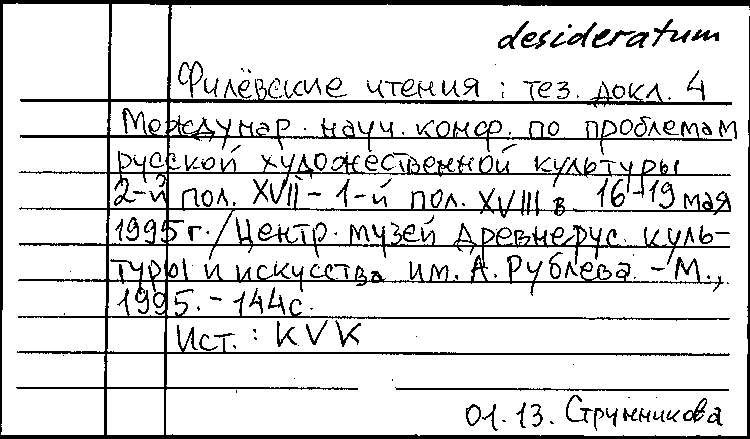 desideratum
Филёвские чтения : тез. докл. 4
Междунар. науч. конф. по проблемам
русской художественной культуры
2-й пол. XVII - 1-й пол. XVIII в. 16-19 мая
1995 г. / Центр. музей древнерус. куль-
туры и искусства им. А. Рублева. - М.,
1995. - 144с.
Ист. : KVK
01.13. Струнникова